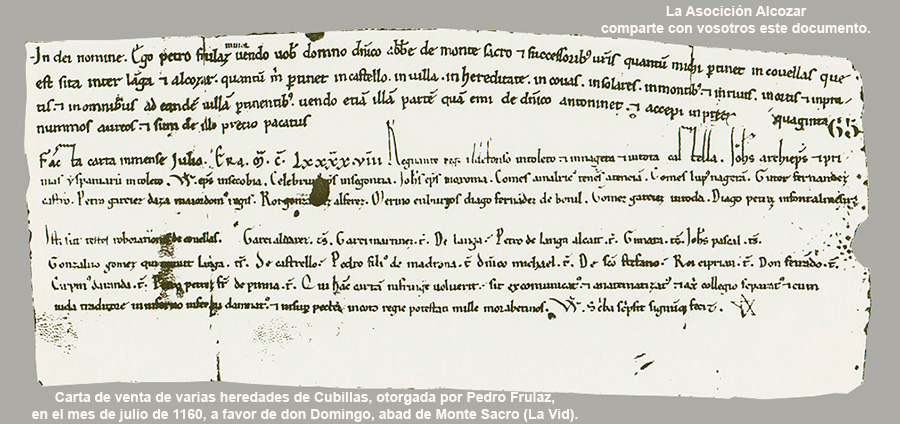 La Asocición Alcozar
comparte con vosotros este documento.
In dei nomine. Ego petro frulaz vendo vob domno dnico abbe de monte sacro ⁊ successorib uris quantum michi ptinet in covellas que
est sita inter langa ⁊ alcozar. quantu m ptinet in castello. in villa. in hereditate. in covas. in solares. in montib ⁊ in rivis. in ortis ⁊ in pra
tis. ⁊ in omnibus ad eande villa ptinentib. vendo etia illa parte qua emi de dnico antoninez. ⁊ accepi in precio
nummos aureos. ⁊ sum de illo precio pacatus
Facta carta in mense Julio. Era. M. C. LXXXX.VIII Regnante rege ildefonso in toleto ⁊ in nagera ⁊ in tota castella. Johs archieps ⁊ pri
mas yspaniaru in toleto. eps in secobia. Celebrun eps in segoncia. Johs eps in oxoma. Comes amalric tenes atencia. Comes lup nagera. Guter fernandez
castro. Petro garciez daza maiordom regis. Ror gonzalvez alferez. Merino in burgos diago fernadez de bonil. Gomez garciez in roda. Diago petriz
Isti sut testes roboration de covellas. Garci alvarez. ts. Garci martinez. t. De langa. Petro de langa alcait. t. ts. Johs pascal. ts.
Gonzalvo gomez langa. t. De castrello. Pedro fili de madrona. t. dnico michael. t. De sco stefano. Roi ciprian. t. Don ferrado. t.
daranda. t. petrez de pinna. t. Qui hac carta infringe voluerit. sit excomunicat ⁊ anatematizat ⁊ a xi collegio separat ⁊ cum
iuda traditore in inferno damnat. ⁊ insup pectet in coto regie potestati mille morabetinos. Scba scpsit signuq fecit.
Carta de venta de varias heredades de Cubillas, otorgada por Pedro Frulaz,
en el mes de julio de 1160, a favor de don Domingo, abad de Monte Sacro (La Vid).